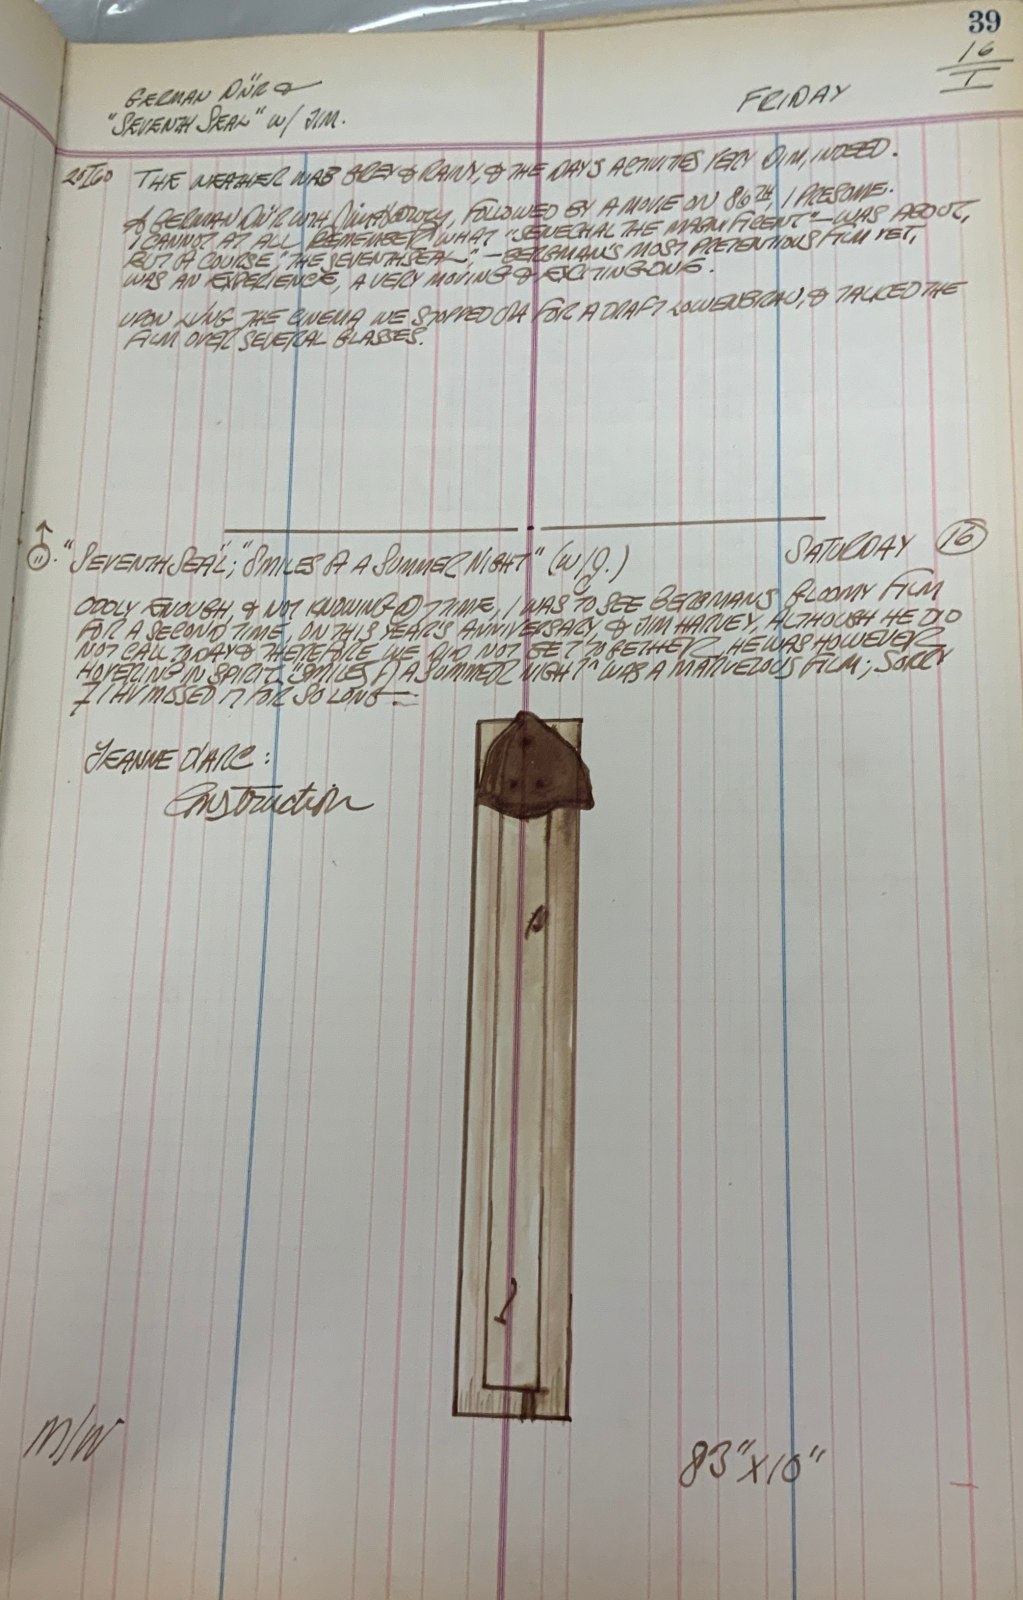 39
16
I
GERMAN DN̈R &
"SEVENTH SEAL" W/ JIM.
FRIDAY
20I60 THE WEATHER WAS GREY & RAINY, & THE DAY'S ACTIVITIES VERY DIM, INDEED.
A GERMAN DN̈R WITH Jim Harvey, FOLLOWED BY A MOVIE ON 86TH, I PRESUME.
I CANNOT AT ALL REMEMBER WHAT "SENECHAL THE MAGNIFICENT" — WAS ABOUT,
BUT OF COURSE "THE SEVENTH SEAL", — BERGMAN'S MOST PRETENTIOUS FILM YET,
WAS AN EXPERIENCE, A VERY MOVING & EXCITING ONE.
UPON LVING THE CINEMA WE STOPPED FOR A DRAFT LOWENBRAU, & TALKED THE
FILM OVER SEVERAL GLASSES.
"SEVENTH SEAL"; "SMILES OF A SUMMER NIGHT" (W/J.)
SATURDAY 16
ODDLY ENOUGH, & NOT KNOWING @ T TIME, I WAS TO SEE BERGMAN'S GLOOMY FILM
FOR A SECOND TIME, ON THIS YEAR'S ANNIVERSARY, & JIM HARVEY, ALTHOUGH HE DID
NOT CALL TODAY & THEREFORE WE DID NOT GET TOGETHER, HE WAS HOWEVER
HOVERING IN SPIRIT. "SMILES OF A SUMMER NIGHT" WAS A MARVELOUS FILM; SORRY
I HV MISSED IT FOR SO LONG —
JEANNE D'ARC:
Construction
M/W
83" X 10"